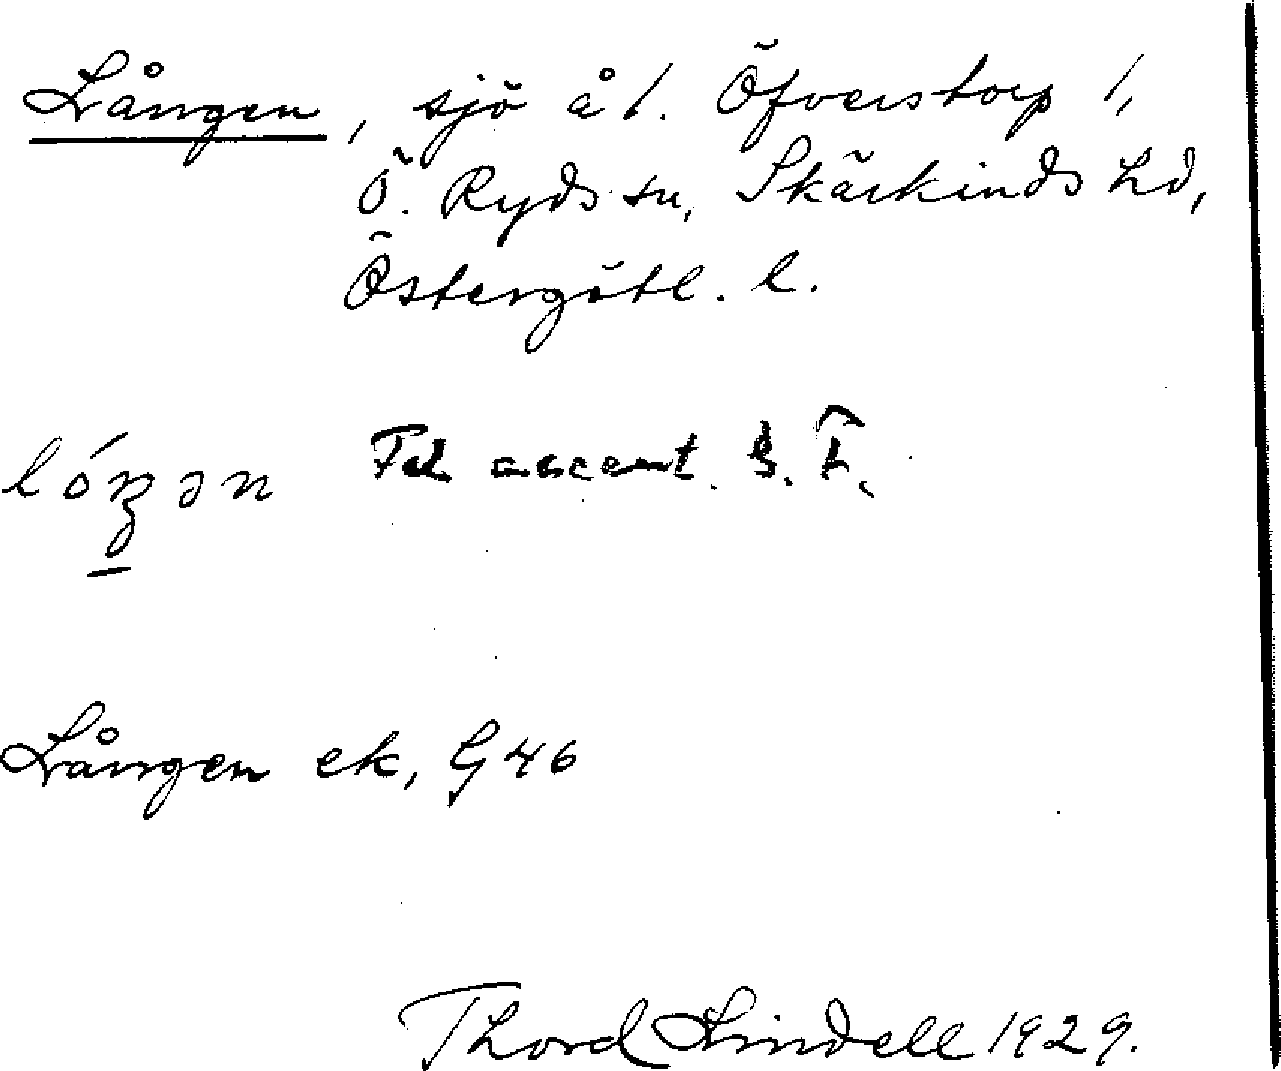 Lången, sjö å 1. Öfverstorp 1,
Ö. Ryds sn, Skärkinds hd,
Östergötl. l.
Fel accent. S. F.
Lången ek, G 46
Thord Lindell 1929.